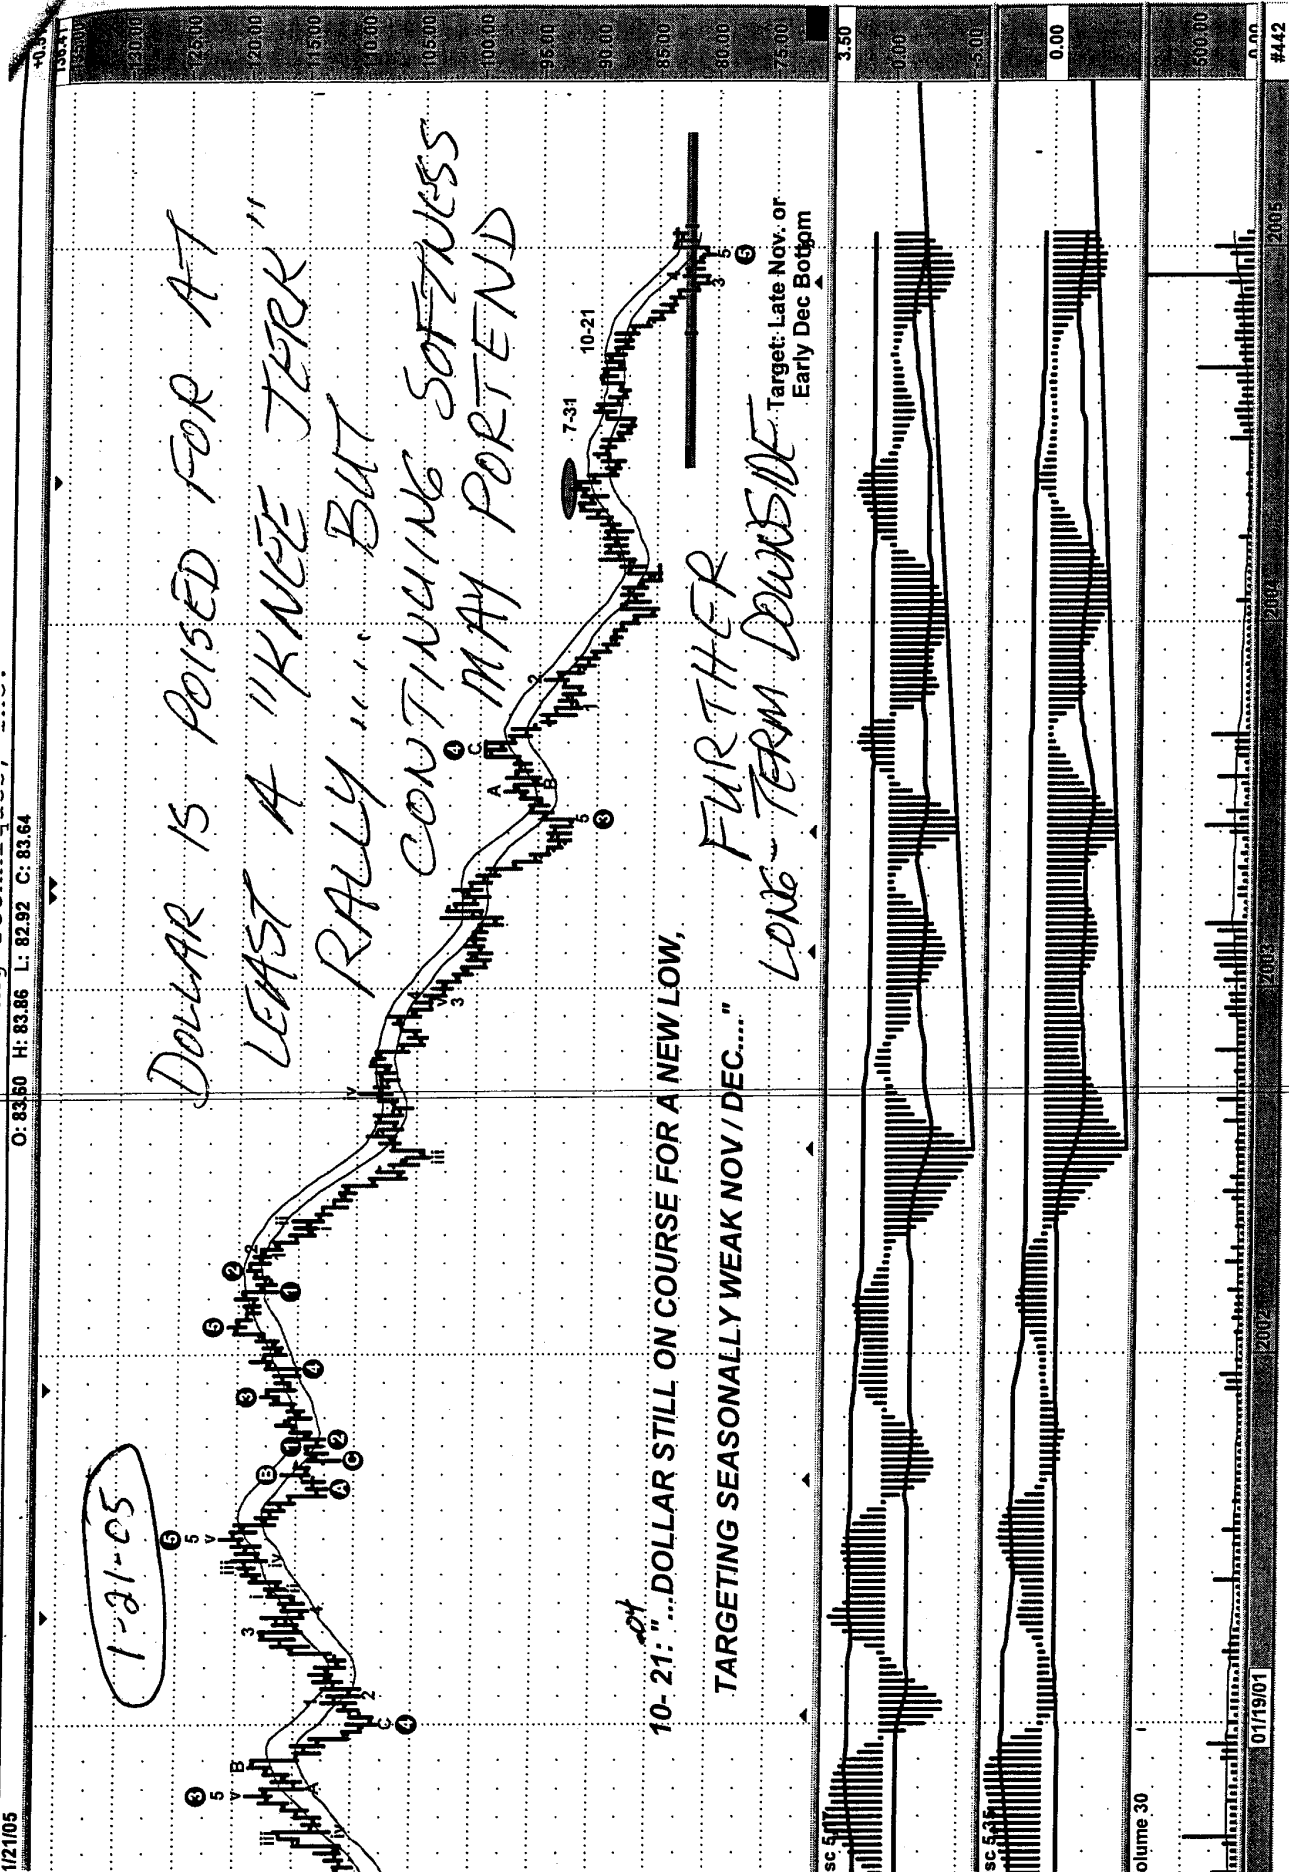 1/21/05
O: 83.60 H: 83.86 L: 82.92 C: 83.64
1-21-05
DOLLAR IS POISED FOR AT
LEAST A "KNEE JERK"
RALLY ..... BUT
CONTINUING SOFTNESS
MAY PORTEND
FURTHER
LONG-TERM DOWNSIDE
10-21: "...DOLLAR STILL ON COURSE FOR A NEW LOW,
04
TARGETING SEASONALLY WEAK NOV / DEC...."
Target: Late Nov. or
Early Dec Bottom
7-31
10-21
130.00
125.00
120.00
115.00
110.00
105.00
100.00
95.00
90.00
85.00
80.00
75.00
3.50
0.00
-5.00
0.00
500.00
0.00
#442
olume 30
01/19/01
2002
2003
2004
2005